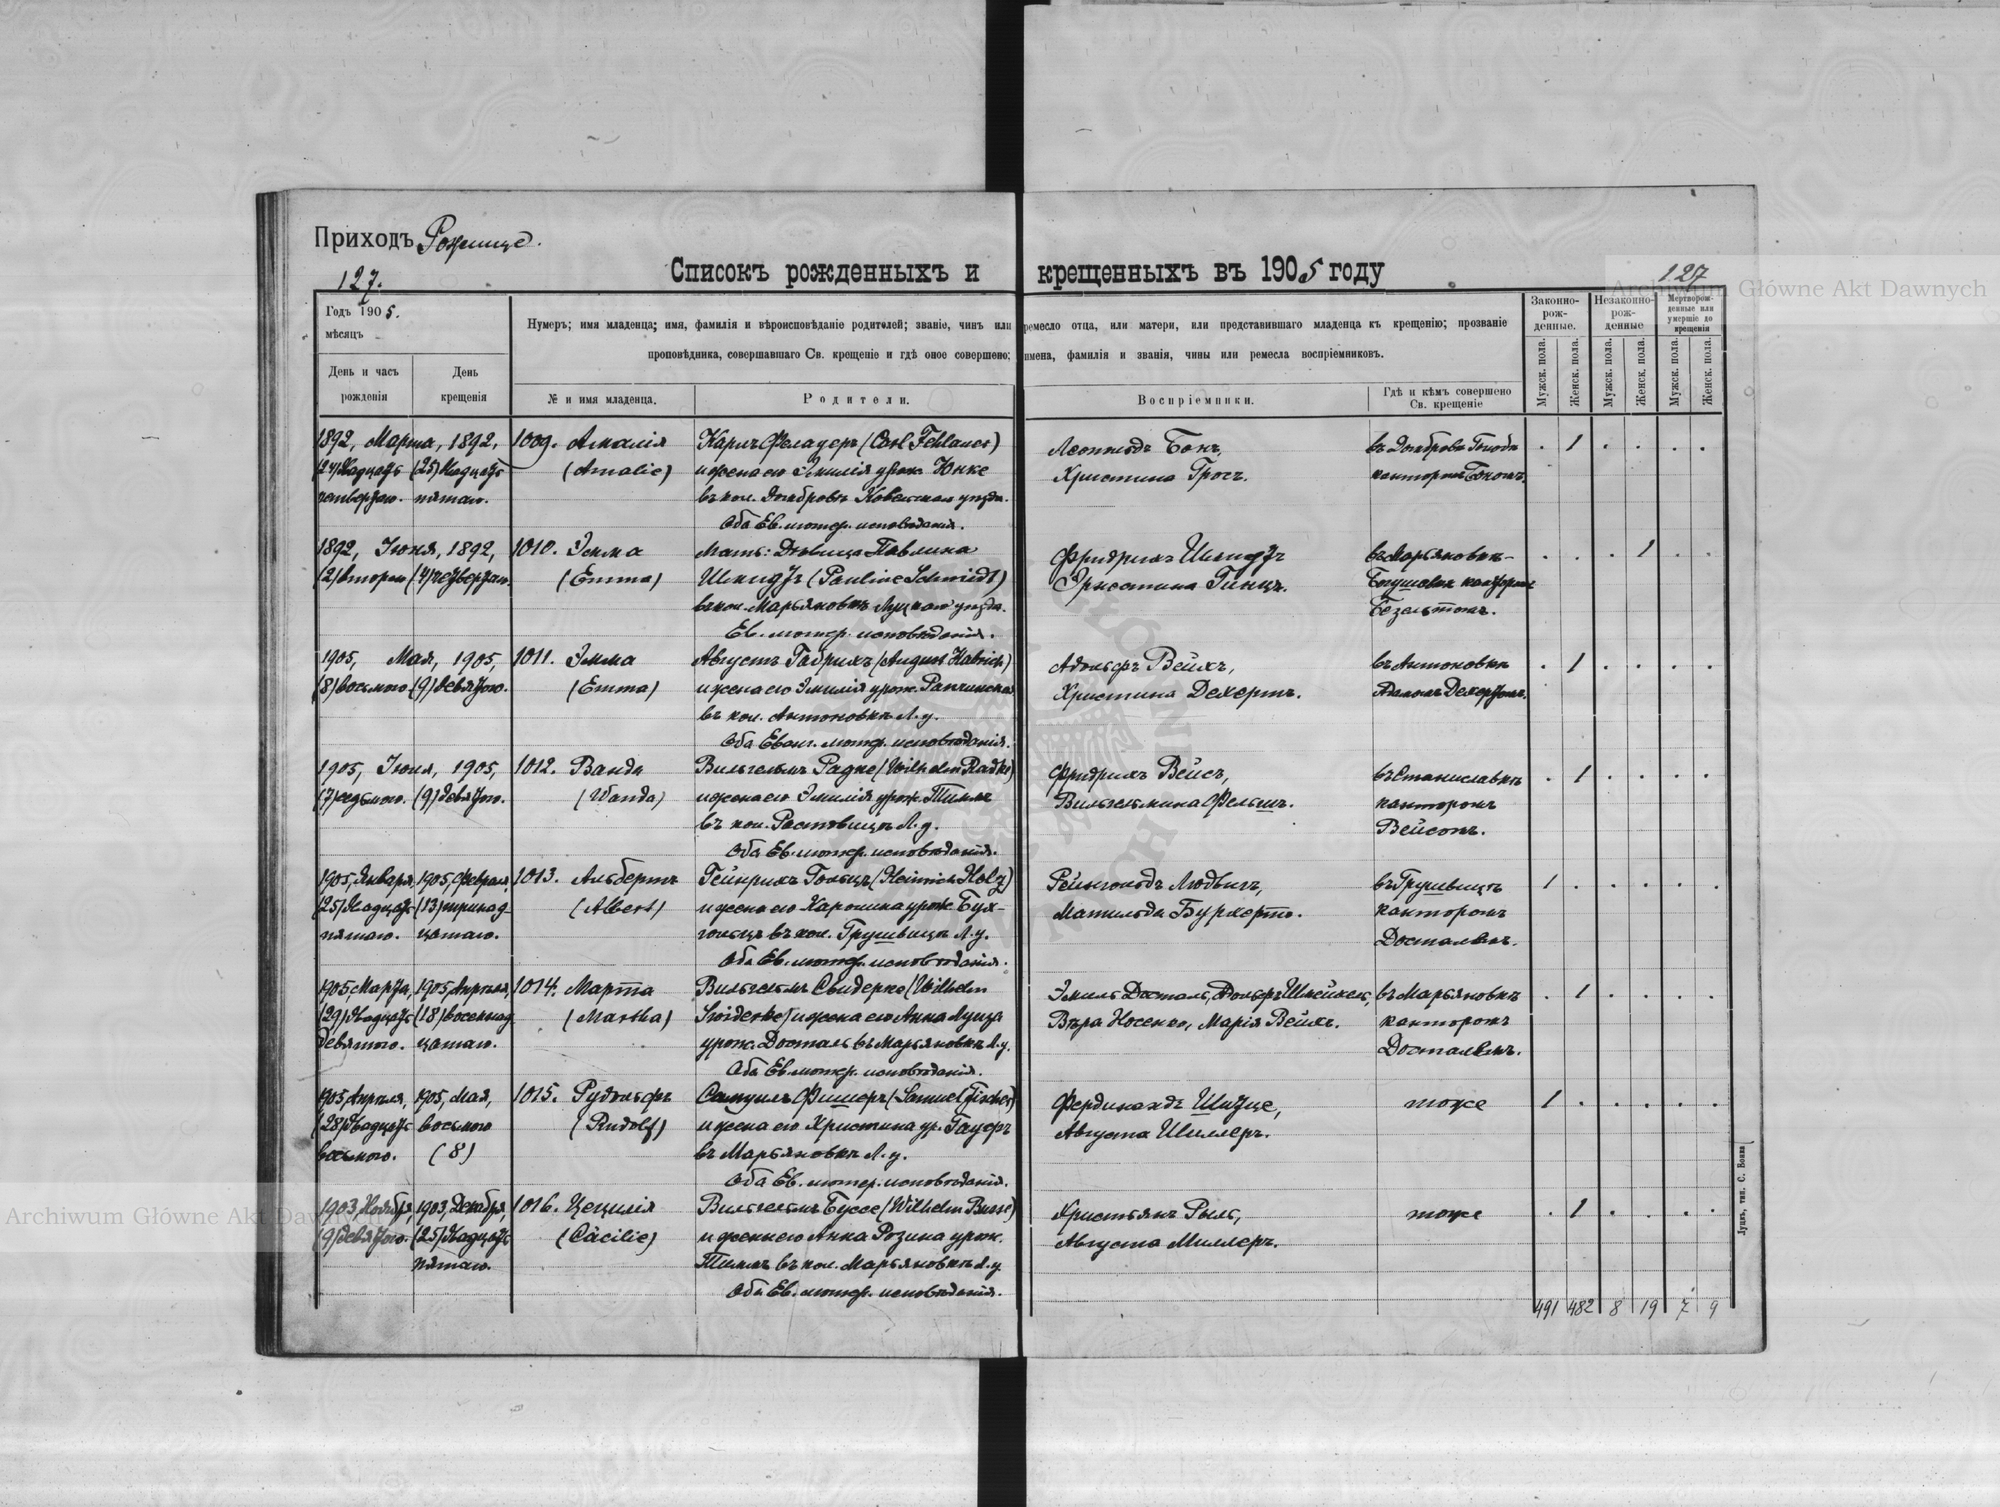 Приходъ Рожище.
127.
Списокъ рожденныхъ и крещенныхъ въ 1905 году
127
Archiwum Główne Akt Dawnych
Годъ 1905.
мѣсяцъ
День и часъ рожденія
День крещенія
Нумеръ; имя младенца; имя, фамилія и вѣроисповѣданіе родителей; званіе, чинъ или ремесло отца, или матери, или представившаго младенца къ крещенію; прозваніе
проповѣдника, совершавшаго Св. крещеніе и гдѣ оное совершено; имена, фамилія и званія, чины или ремесла воспріемниковъ.
№ и имя младенца.
Родители.
Воспріемники.
Гдѣ и кѣмъ совершено Св. крещеніе
Законно-рож-денные.
Незаконно-рож-денные
Мертворож-денные или умершіе до крещенія
Мужск. пола.
Женск. пола.
Мужск. пола.
Женск. пола.
Мужск. пола.
Женск. пола.
1892, Марта, 1892, 1009. Амалія Карлъ Фелауеръ (Carl Fehlauer) Леопольдъ Бокъ, . 1 . . . .
(24) двадцать (25) двадцать (Amalie) и жена его Эмилія урож. Юнке Христина Гросъ. канторомъ Бокомъ.
четвертаго. пятаго. въ кол. Домбровѣ Ковельскаго уѣзда.
Оба Ев. лютер. исповѣданія.
1892, Іюня, 1892, 1010. Эмма Мать: Дѣвица Павлина Фридрихъ Шмидтъ въ Марьяновкѣ- . . . 1 . .
(2) втораго (4) четвертаго. (Emma) Шмидтъ (Pauline Schmiedt) Эрнстина Гинцъ. Богушовкѣ канторомъ
въ кол. Марьяновкѣ Луцкаго уѣзда. Безельтомъ.
Ев. лютер. исповѣданія.
1905, Мая, 1905, 1011. Эмма Августъ Габрихъ (August Habrich) Адольфъ Вейхъ, въ Антоновкѣ . 1 . . . .
(8) восьмого (9) девятого. (Emma) и жена его Эмилія урож. Христина Дехертъ. Адамомъ Дехертомъ.
въ кол. Антоновкѣ Л. у.
Оба Еванг. лютер. исповѣданія.
1905, Іюня, 1905, 1012. Ванда Вильгельмъ Радке (Wilhelm Radke) Фридрихъ Вейсъ, въ Станиславкѣ . 1 . . . .
(7) седьмого. (9) девятого. (Wanda) и жена его Эмилія урож. Тиммъ Вильгельмина Фельшъ. канторомъ
въ кол. Растовицѣ Л. у. Вейсомъ.
Оба Ев. лютер. исповѣданія.
1905, Января, 1905, Февраля, 1013. Альбертъ Гейнрихъ Гольцъ (Heinrich Holz) Рейнгольдъ Людвигъ, въ Грушвицѣ 1 . . . . .
(25) двадцать (13) тринад- (Albert) и жена его Каролина урож. Бух- Матильда Бурхертъ. канторомъ
пятаго. цатаго. гольцъ въ кол. Грушвицѣ Л. у. Досталемъ.
Оба Ев. лютер. исповѣданія.
1905, Марта, 1905, Апрѣля, 1014. Марта Вильгельмъ Свидерке (Wilhelm Эмиль Досталь, Адольфъ Шмейкель, въ Марьяновкѣ . 1 . . . .
(29) двадцать (18) восемнад- (Martha) Swiderke) и жена его Анна Луиза Вѣра Носенко, Марія Вейхъ. канторомъ
девятого. цатаго. урож. Досталь въ Марьяновкѣ Л. у. Досталемъ.
Оба Ев. лютер. исповѣданія.
1905, Апрѣля, 1905, Мая, 1015. Рудольфъ Самуилъ Фишеръ (Samuel Fischer) Фердинандъ Шитце, тоже 1 . . . . .
(28) двадцать восьмого (Rudolf) и жена его Христина ур. Гауфъ Августа Шиллеръ.
восьмого. (8) въ Марьяновкѣ Л. у.
Оба Ев. лютер. исповѣданія.
1903, Ноября, 1903, Декабря, 1016. Цецилія Вильгельмъ Буссе (Wilhelm Busse) Христьянъ Рыль, тоже . 1 . . . .
(9) девятого. (25) двадцать (Cäcilie) и жена его Анна Розина урож. Августа Миллеръ.
пятаго. Тиммъ въ кол. Марьяновкѣ Л. у
Оба Ев. лютер. исповѣданія.
491 482 8 19 7 9
Луцкъ, тип. С. Бокка
Archiwum Główne Akt Dawnych